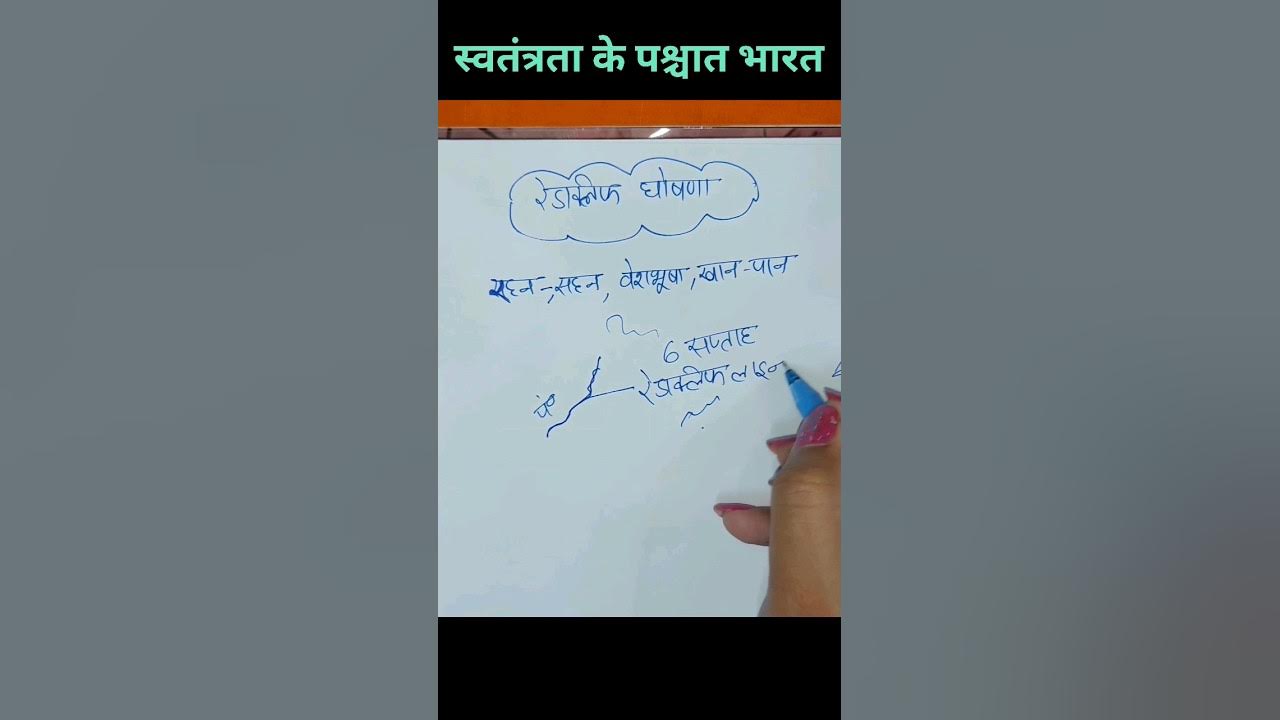 स्वतंत्रता के पश्चात भारत
रेडक्लिफ घोषणा
रहन-सहन, वेशभूषा, खान-पान
6 सप्ताह
रेडक्लिफ लाइन